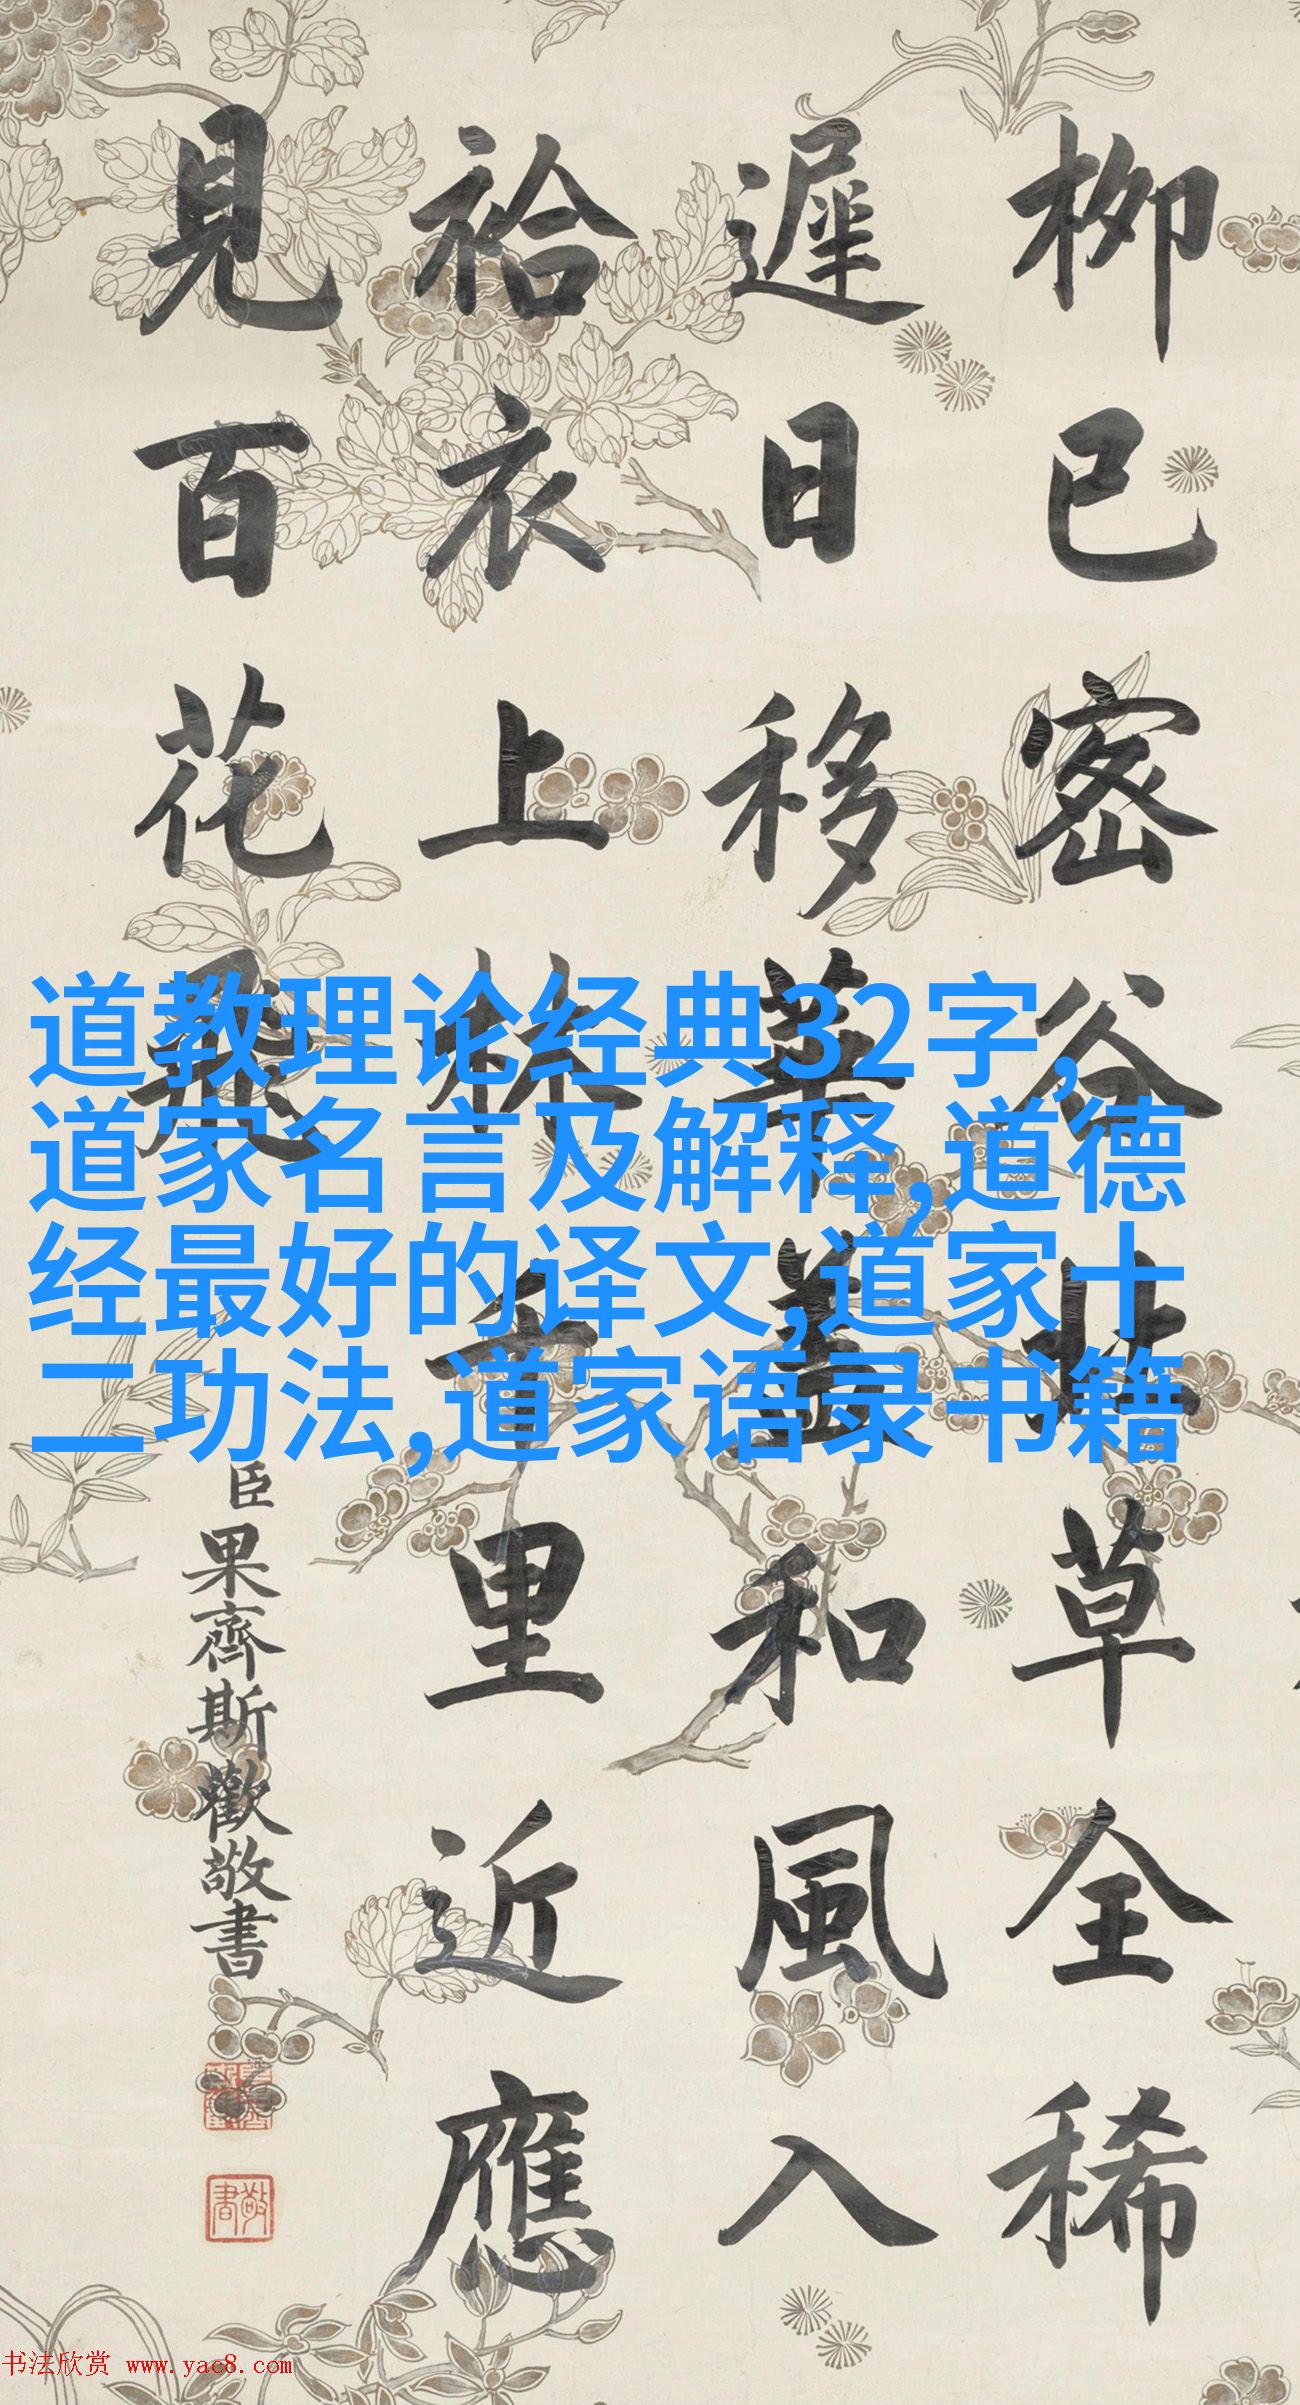 柳已密谷草全稀
遲日移華蓋和風入
袷衣上林千里近應
見百花飛
臣果齊斯歡敬書
敬書
道教理论经典32字,
道家名言及解释,道德
经最好的译文,道家十
二功法,道家语录书籍
书法欣赏 www.yac8.com